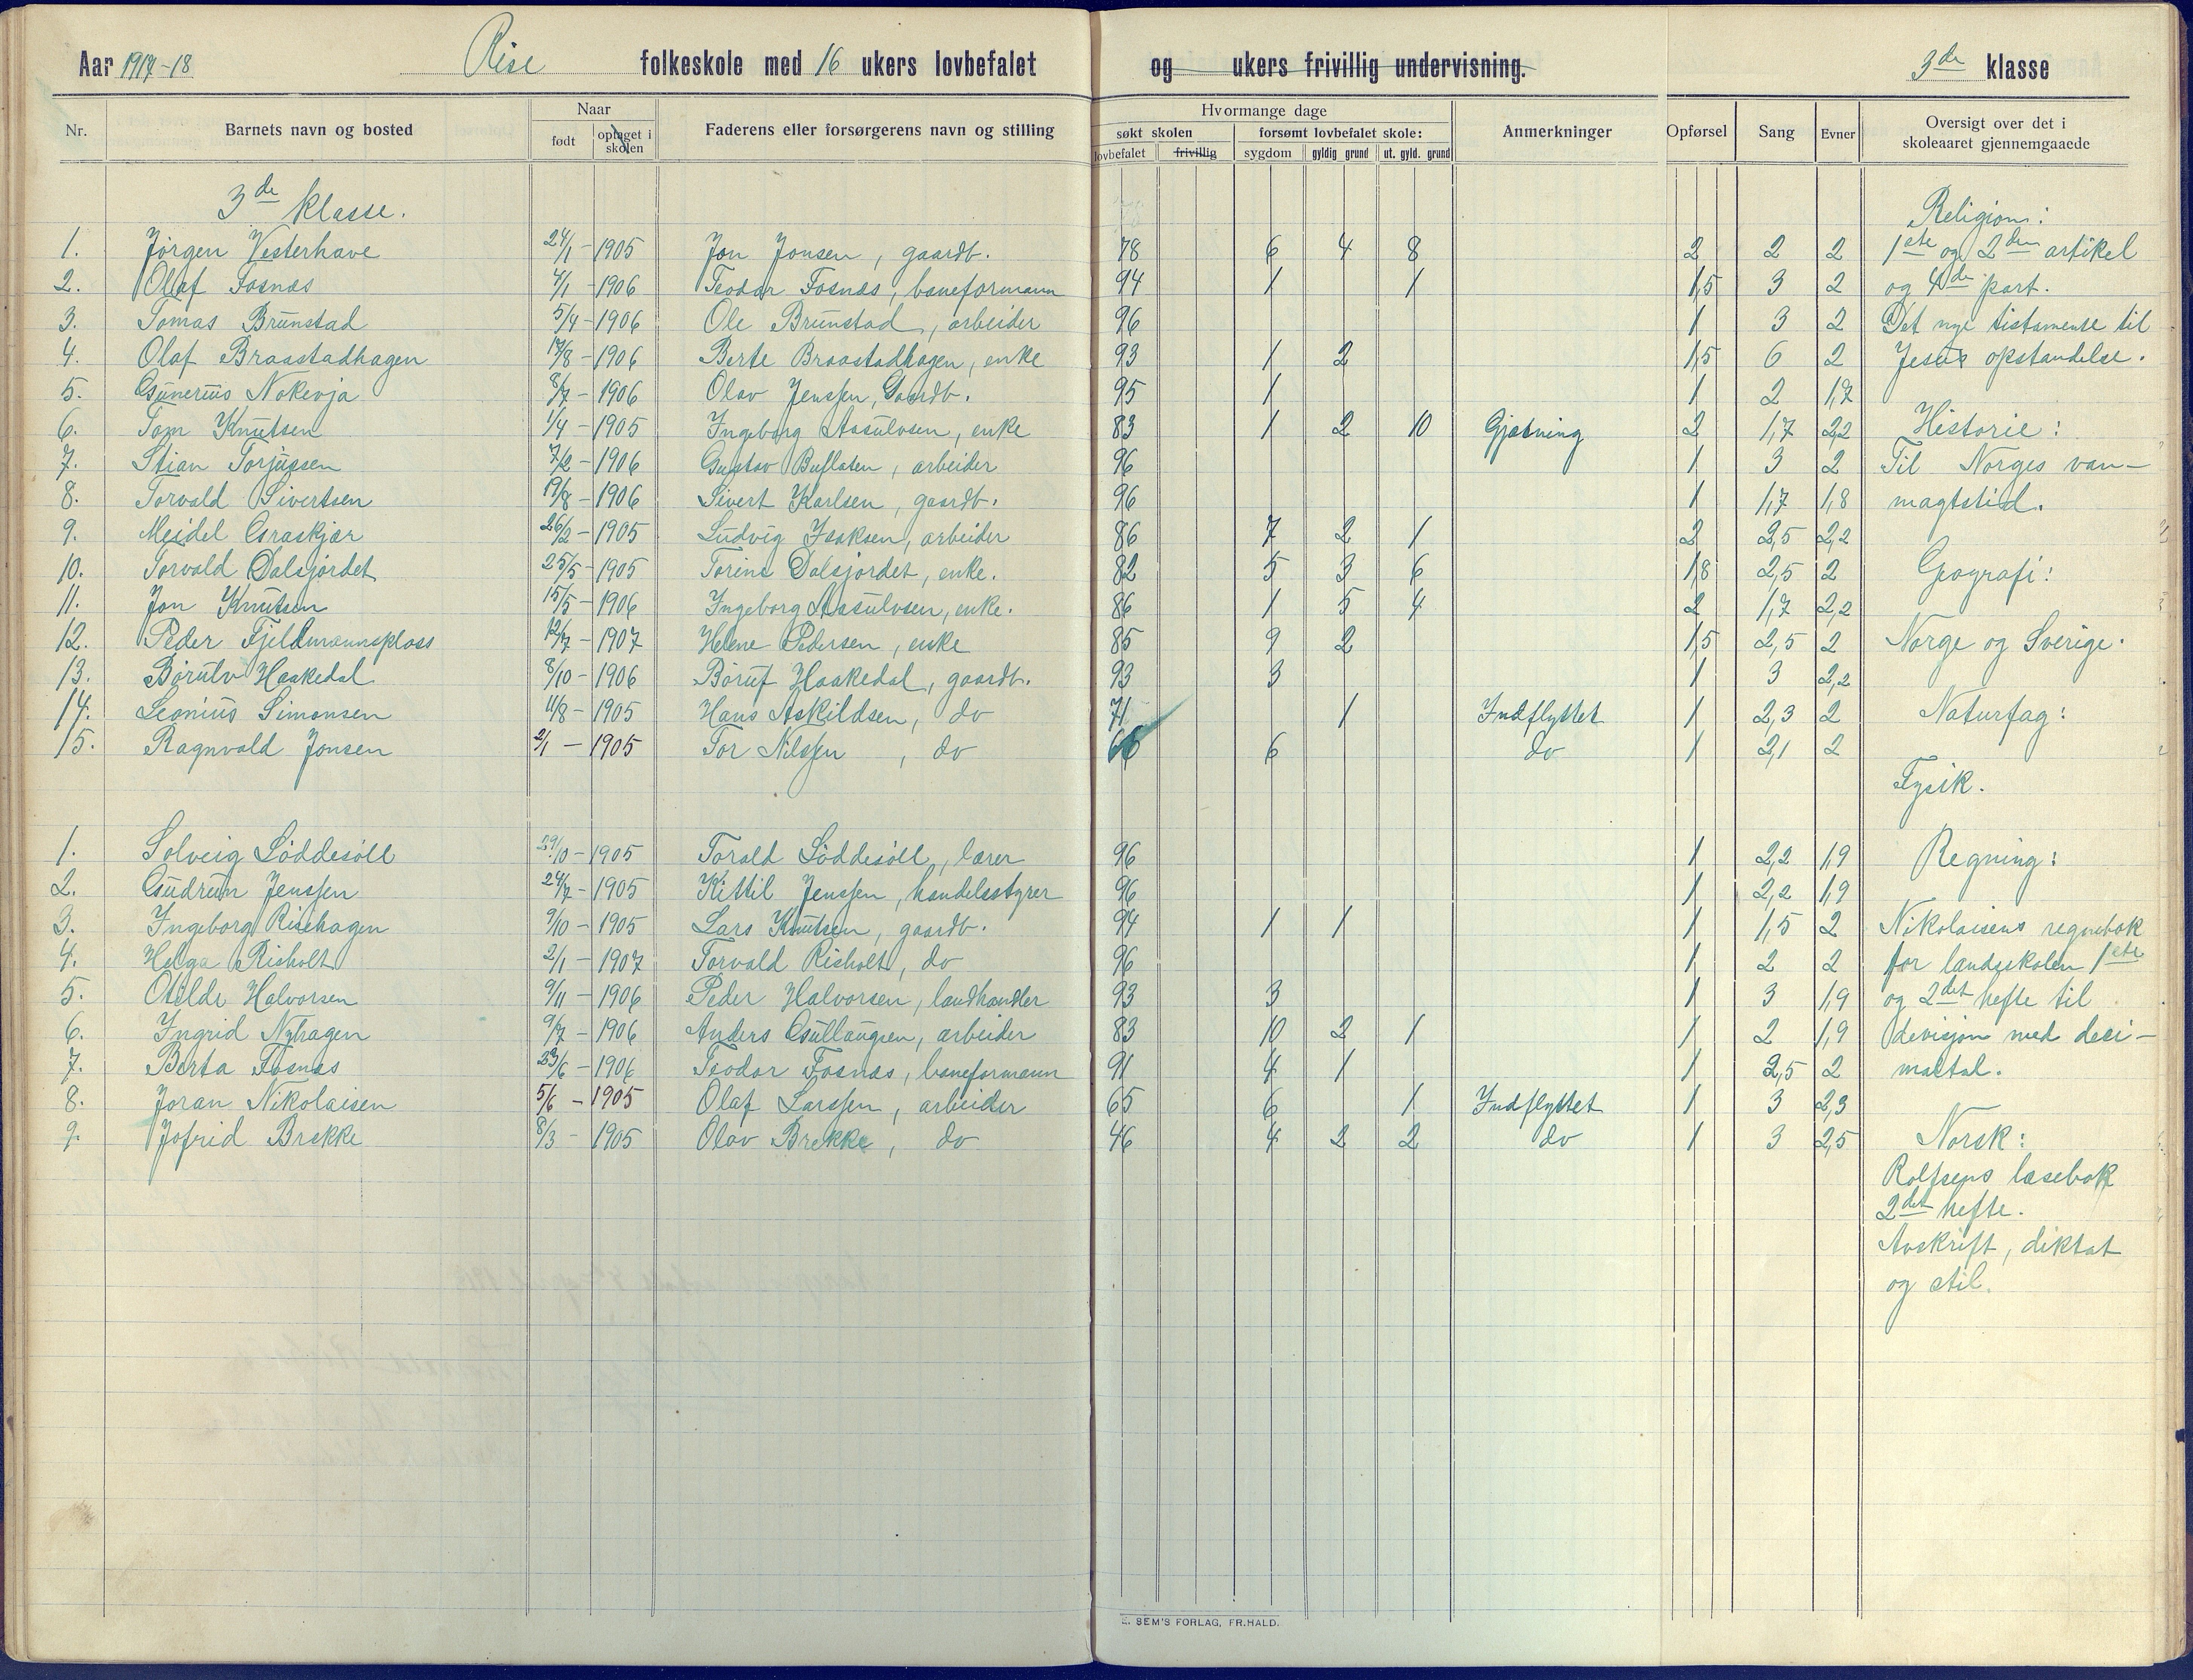 Aar 1917-18 Rise folkeskole med 16 ukers lovbefalet og ukers frivillig undervisning. 3de klasse
Nr. Barnets navn og bosted Naar født optaget i skolen Faderens eller forsørgerens navn og stilling Hvormange dage søkt skolen lovbefalet frivillig forsømt lovbefalet skole: sygdom gyldig grund ut. gyld. grund Anmerkninger Opførsel Sang Evner Oversigt over det i skoleaaret gjennemgaaede
3de klasse. Religion:
1. Jörgen Vesterhave 24/1 - 1905 Jon Jonsen, gaardb. 78 6 4 8 2 2 2 1ste og 2den artikel
2. Olaf Fosnæs 4/1 - 1906 Teodor Fosnæs, baneformann 94 1 1 1,5 3 2 og 4de part.
3. Tomas Brunstad 5/4 - 1906 Ole Brunstad, arbeider 96 1 3 2 Det nye testamente til
4. Olaf Braastadhagen 17/8 - 1906 Berte Braastadhagen, enke 93 1 2 1,5 6 2 Jesus opstandelse.
5. Gunerius Nokevja 8/7 - 1906 Olav Jenssen, Gaardb. 95 1 1 2 1,7
6. Tom Knutsen 1/4 - 1905 Ingeborg Aasulvsen, enke 83 1 2 10 Gjætning 2 1,7 2,2 Historie:
7. Stian Torjussen 7/2 - 1906 Gustav Buflaten, arbeider 96 1 3 2 Til Norges van-
8. Torvald Sivertsen 19/8 - 1906 Sivert Karlsen, gaardb. 96 1 1,7 1,8 magtstid.
9. Meidel Graskjær 26/2 - 1905 Ludvig Isaksen, arbeider 86 7 2 1 2 2,5 2,2
10. Torvald Dalsjordet 25/5 - 1905 Torine Dalsjordet, enke. 82 5 3 6 1,8 2,5 2 Geografi:
11. Jon Knutsen 15/5 - 1906 Ingeborg Aasulvsen, enke. 86 1 5 4 2 1,7 2,2
12. Peder Fjeldmannsplass 12/7 - 1907 Helene Pedersen, enke 85 9 2 1,5 2,5 2 Norge og Sverige.
13. Börulv Haakedal 8/10 - 1906 Böruf Haakedal, gaardb. 93 3 1 3 2,2
14. Leonius Simonsen 11/8 - 1905 Hans Askildsen, do 71 1 Indflyttet 1 2,3 2 Naturfag:
15. Ragnvald Jonsen 2/1 - 1905 Tor Nilssen, do 66 6 do 1 2,1 2
Fysik.
1. Solveig Löddesöll 29/10 - 1905 Torald Löddesöll, lærer 96 1 2,2 1,9 Regning:
2. Gudrun Jenssen 24/7 - 1905 Kittil Jenssen, handelsstyrer 96 1 2,2 1,9
3. Ingeborg Risehagen 9/10 - 1905 Lars Knutsen, gaardb. 94 1 1 1 1,5 2 Nikolaisens regnebok
4. Helga Risholt 2/1 - 1907 Torvald Risholt, do 96 1 2 2 for landsskolen 1ste
5. Otilde Halvorsen 9/11 - 1906 Peder Halvorsen, landhandler 93 3 1 3 1,9 og 2det hefte til
6. Ingrid Nyhagen 9/7 - 1906 Anders Gullaugsen, arbeider 83 10 2 1 1 2 1,9 devisjon med deci-
7. Berta Fosnæs 23/6 - 1906 Teodor Fosnæs, baneformann 91 4 1 1 2,5 2 maltal.
8. Joran Nikolaisen 5/6 - 1905 Olaf Larssen, arbeider 65 6 1 Indflyttet 1 3 2,3
9. Jofrid Brekke 8/3 - 1905 Olav Brekke, do 46 4 2 2 do 1 3 2,5 Norsk:
Rolfsens læsebok
2det hefte.
Avskrift, diktat
og stil.
E. SEM'S FORLAG, FR.HALD.